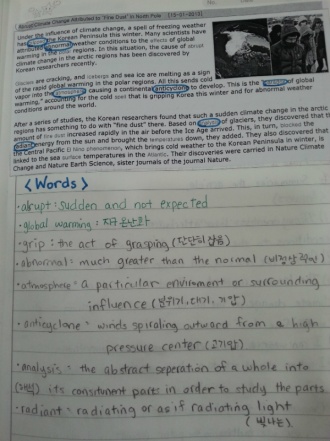 Abrupt Climate Change Attributed to "Fine Dust" in North Pole [10-01-2013]
Under the influence of climate change, a spell of freezing weather
has the Korean Peninsula this winter. Many scientists have
abnormal weather conditions to the effects of global
in the regions. In this situation, the cause of
climate change in the arctic regions has been discovered by
Korean researchers recently.
Glaciers are cracking, and icebergs and sea ice are melting as a sign
of the rapid global warming in the polar regions. All this sends cold
vapor into the causing a continental anticyclone to develop. This is the of global
warming," accounting for the cold spell that is gripping Korea this winter and for abnormal weather
conditions around the world.
After a series of studies, the Korean researchers found that such a sudden climate change in the arctic
regions has something to do with "fine dust" there. Based on of glaciers, they discovered that the
amount of fine dust increased rapidly in the air before the Ice Age arrived. This, in turn, blocked the
radiant energy from the sun and brought the temperatures down, they added. They also discovered that
the Central Pacific El Nino phenomenon, which brings cold weather to the Korean Peninsula in winter, is
linked to the sea surface temperatures in the Atlantic. Their discoveries were carried in Nature Climate
Change and Nature Earth Science, sister journals of the journal Nature.
<Words>
·abrupt: sudden and not expected
·global warming: 지구온난화
·grip: the act of grasping (단단히 잡음)
·abnormal: much greater than the normal
·atmosphere: a particular environment or surrounding
influence (분위기, 대기, 기압)
·anticyclone: winds spiraling outward from a high
pressure center (고기압)
·analysis: the abstract seperation of a whole into
its constituent parts in order to study the parts
·radiant: radiating or as if radiating light
(빛나는)